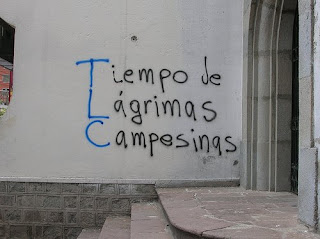 Tiempo de
Lágrimas
Campesinas